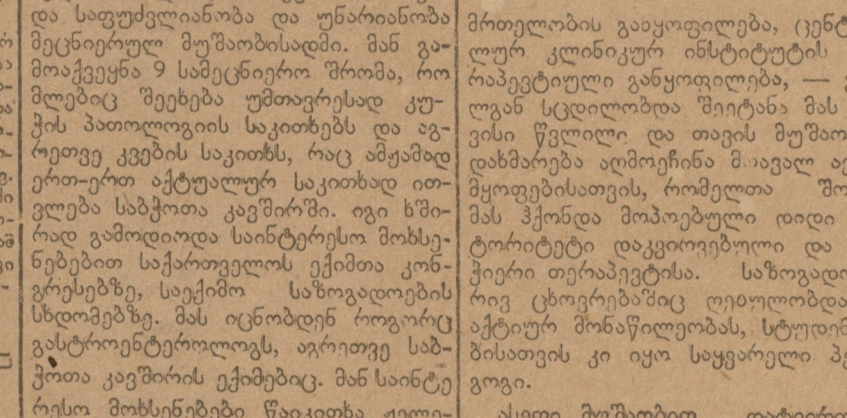 და საფუძვლიანობა და უნარიანობა
მეცნიერულ მუშაობისადმი. მან გა-
მოაქვეყნა 9 სამეცნიერო შრომა, რო
მლებიც შეეხება უმთავრესად კუ-
ჭის პათოლოგიის საკითხებს და აგ-
რეთვე კვების საკითხს, რაც ამჟამად
ერთ-ერთ აქტუალურ საკითხად ით-
ვლება საბჭოთა კავშირში. იგი ხში-
რად გამოდიოდა საინტერესო მოხსე-
ნებებით საქართველოს ექიმთა კონ-
გრესებზე, საექიმო საზოგადოების
სხდომებზე. მას იცნობდენ როგორც
გასტროენტეროლოგს, აგრეთვე საბ-
ჭოთა კავშირის ექიმებიც. მან საინტე
რესო მოხსენებები წაიკითხა
მრთელობის განყოფილება, ცენტ
ლურ კლინიკურ ინსტიტუტის
რაპევტიული განყოფილება, —
ლგან სცდილობდა შეეტანა მას
ვისი წვლილი და თავის მუშაო
დახმარება აღმოეჩინა მრავალ ავ
მყოფებისათვის, რომელთა შო
მას ჰქონდა მოპოებული დიდი
ტორიტეტი დაკვირვებული და
ჭიერი თერაპევტისა. საზოგადო
რივ ცხოვრებაშიც ღებულობდა
აქტიურ მონაწილეობას, სტუდენ
ბისათვის კი იყო საყვარელი პე
გოგი.
ასეთი მუშაობით